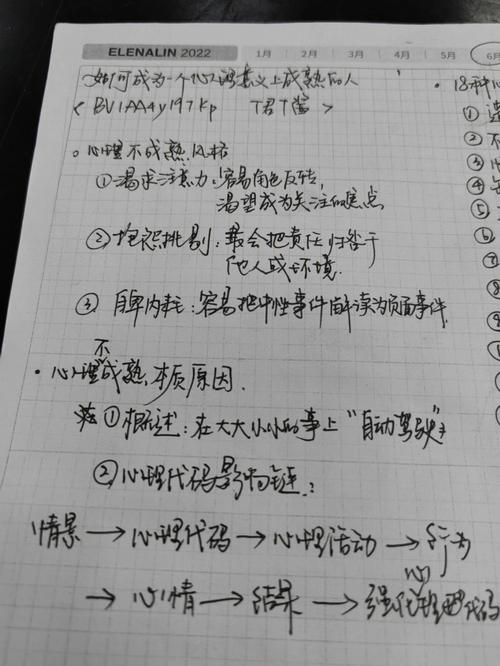 ELENALIN 2022 1月 2月 3月 4月 5月 6月
如何成为一个心理意义上成熟的人
< BV1AA4y197Kp T君T酱 >
。心理不成熟风格
①渴求注意力:容易角色反转,
渴望成为关注的焦点
②抱怨挑剔:最会把责任归咎于
他人或环境.
③ 自卑内耗:容易把中性事件解读为负面事件.
· 心理不成熟本质原因.
①概述:在大大小小的事上“自动驾驶”
②心理代码影响链:
情景→心理代码→心理活动→行为
→心情→结果→强化心理代码
· 18种心
①
② 不
③
④
⑤
⑥
⑦
⑧